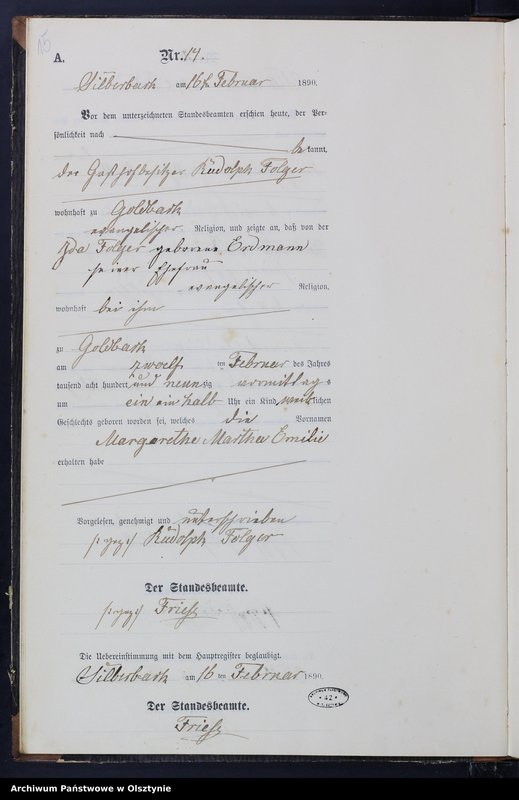 15
A.
Nr. 14.
Silberbach am 16ten Februar 1890.
Vor dem unterzeichneten Standesbeamten erschien heute, der Per-
sönlichkeit nach
bekannt,
der Gasthofbesitzer Rudolph Folger
wohnhaft zu Goldbach
evangelischer Religion, und zeigte an, daß von der
Ida Folger geborene Erdmann
seiner Ehefrau
evangelischer Religion,
wohnhaft bei ihm
zu Goldbach
am zwoelf ten Februar des Jahres
tausend acht hundert und neunzig vormittags
um ein ein halb Uhr ein Kind weiblichen
Geschlechts geboren worden sei, welches die Vornamen
Margarethe Martha Emilie
erhalten habe
Vorgelesen, genehmigt und unterschrieben
Rudolph Folger
Der Standesbeamte.
Friese
Die Uebereinstimmung mit dem Hauptregister beglaubigt.
Silberbach am 16 ten Februar 1890.
Der Standesbeamte.
Friese
* 42 *
Archiwum Państwowe w Olsztynie